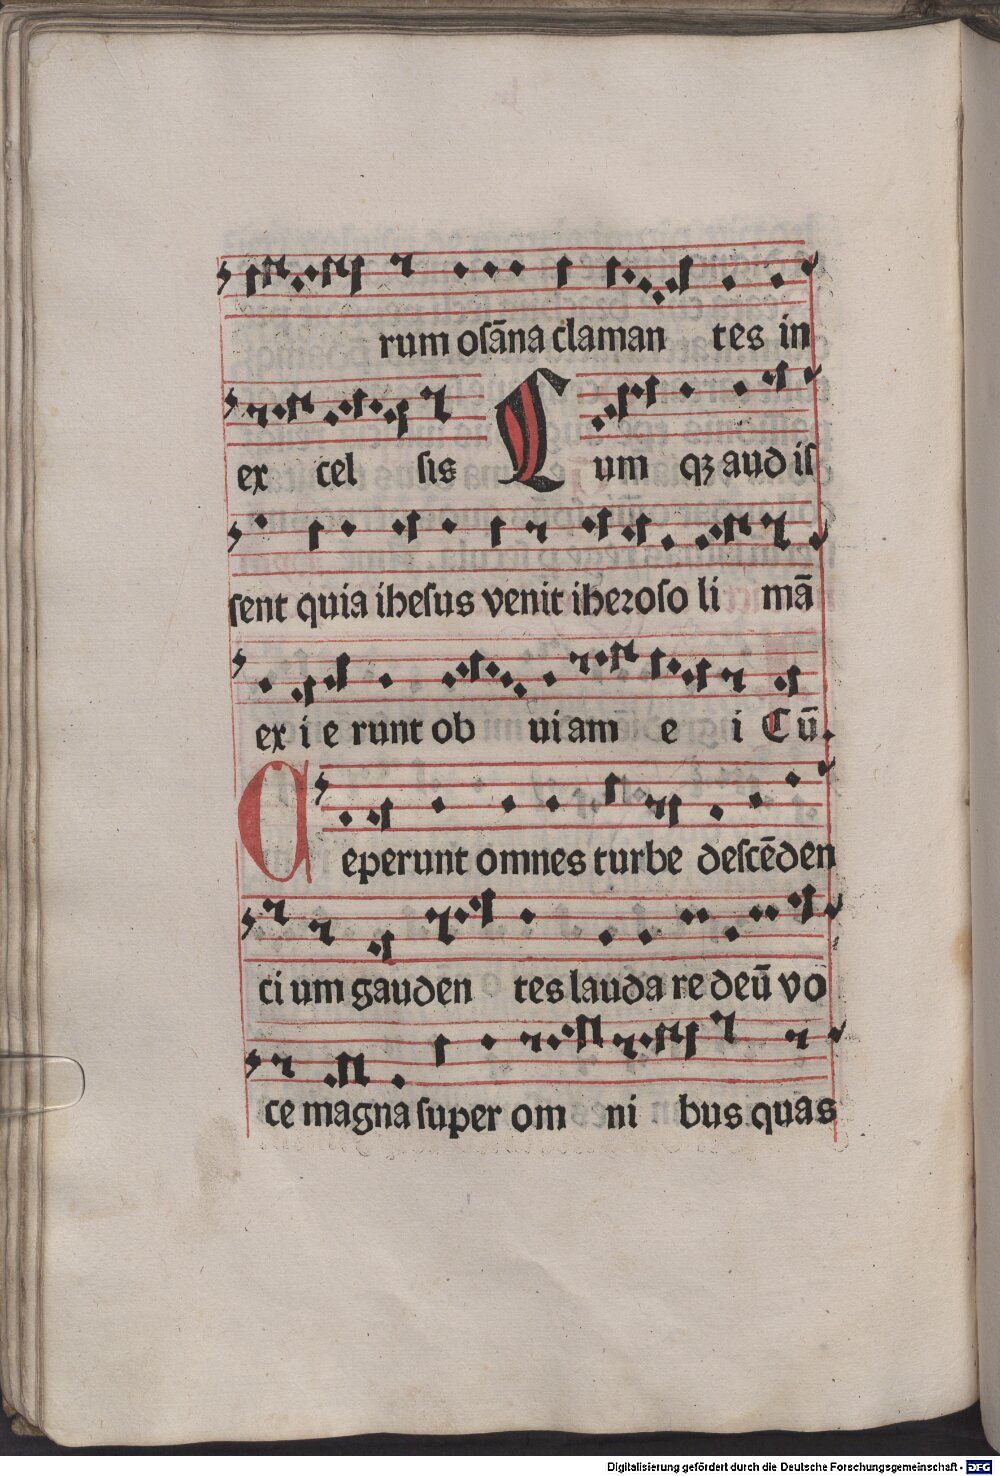 rum osāna claman tes in
ex cel sis Cum qꝫ audis
sent quia ihesus venit iheꝛoso li mā
ex i e runt ob ui am e i Cū.
Ceperunt omnes turbe descēden
ti um gauden tes lauda re deū vo
ce magna super om ni bus quas
Digitalisierung gefördert durch die Deutsche Forschungsgemeinschaft - DFG